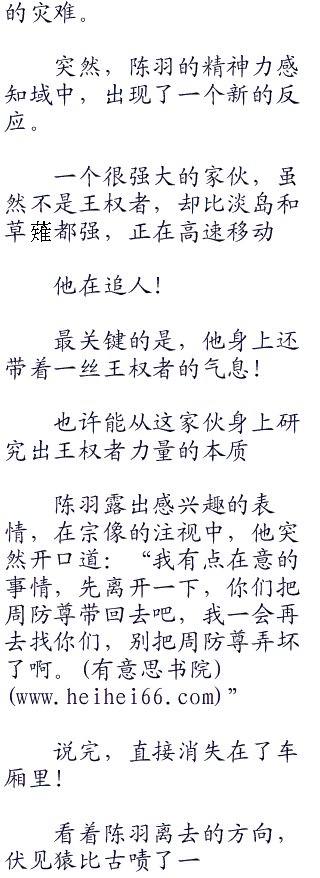 的灾难。
突然，陈羽的精神力感
知域中，出现了一个新的反
应。
一个很强大的家伙，虽
然不是王权者，却比淡岛和
草薙都强，正在高速移动
他在追人！
最关键的是，他身上还
带着一丝王权者的气息！
也许能从这家伙身上研
究出王权者力量的本质
陈羽露出感兴趣的表
情，在宗像的注视中，他突
然开口道：“我有点在意的
事情，先离开一下，你们把
周防尊带回去吧，我一会再
去找你们，别把周防尊弄坏
了啊。(有意思书院)
(www.heihei66.com)”
说完，直接消失在了车
厢里！
看着陈羽离去的方向，
伏见猿比古啧了一